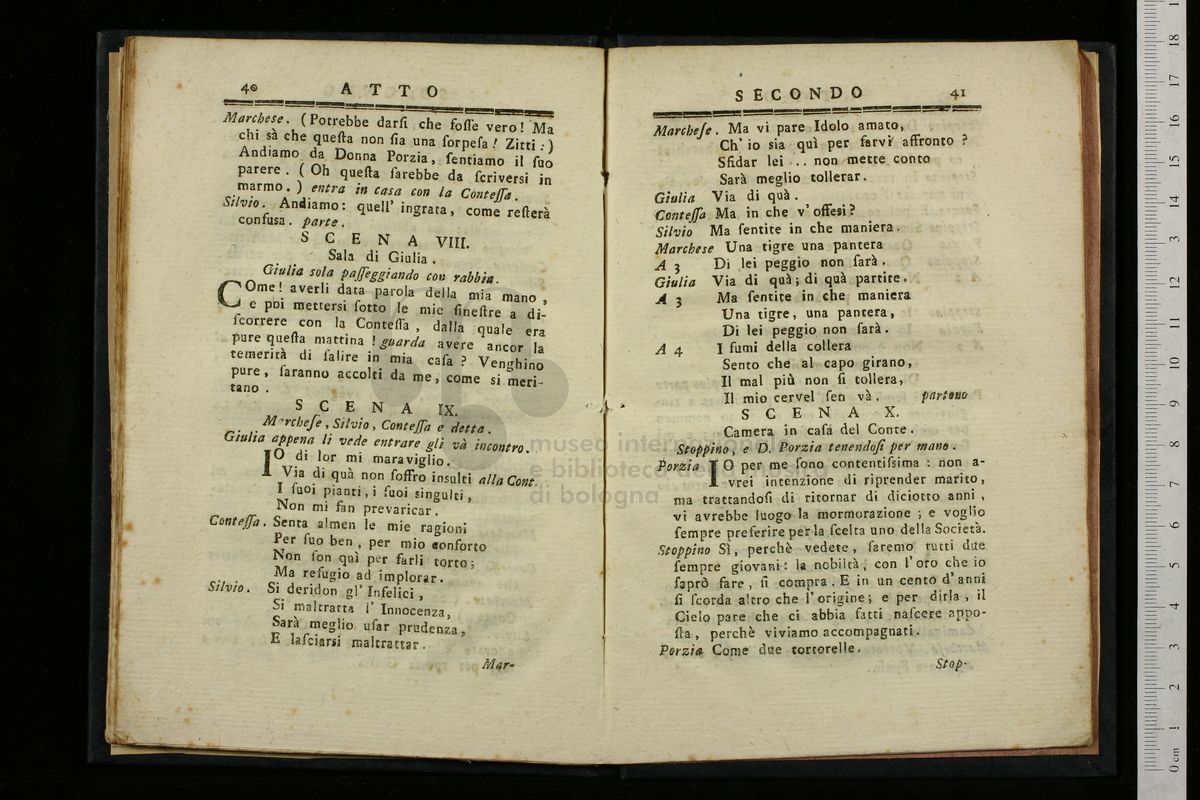 40 ATTO
Marchese. (Potrebbe darſi che foſſe vero! Ma
chi sà che queſta non ſia una ſorpeſa! Zitti:)
Andiamo da Donna Porzia, ſentiamo il ſuo
parere. (Oh queſta ſarebbe da ſcriversi in
marmo.) entra in caſa con la Conteſſa.
Silvio. Andiamo: quell' ingrata, come reſterà
confusa. parte.
SCENA VIII.
Sala di Giulia.
Giulia sola paſſeggiando con rabbia.
COme! averli data parola della mia mano,
e poi mettersi ſotto le mie fineſtre a di-
ſcorrere con la Conteſſa, dalla quale era
pure queſta mattina! guarda avere ancor la
temerità di ſalire in mia caſa? Venghino
pure, ſaranno accolti da me, come si meri-
tano.
SCENA IX.
Marcheſe, Silvio, Conteſſa e detta.
Giulia appena li vede entrare gli và incontro.
IO di lor mi maraviglio.
Via di quà non ſoffro insulti alla Cont.
I ſuoi pianti, i ſuoi singulti,
Non mi fan prevaricar.
Conteſſa. Senta almen le mie ragioni
Per ſuo ben, per mio conforto
Non ſon quì per farli torto;
Ma refugio ad implorar.
Silvio. Si deridon gl' Infelici,
Si maltratta l' Innocenza,
Sarà meglio uſar prudenza,
E laſciarsi maltrattar.
Mar-
SECONDO 41
Marcheſe. Ma vi pare Idolo amato,
Ch' io sia quì per farvi affronto?
Sfidar lei .. non mette conto
Sarà meglio tollerar.
Giulia Via di quà.
Conteſſa Ma in che v' offesi?
Silvio Ma ſentite in che maniera.
Marchese Una tigre una pantera
A 3 Di lei peggio non ſarà.
Giulia Via di quà; di quà partite.
A 3 Ma ſentite in che maniera
Una tigre, una pantera,
Di lei peggio non ſarà.
A 4 I fumi della collera
Sento che al capo girano,
Il mal più non ſi tollera,
Il mio cervel ſen và. partono
SCENA X.
Camera in caſa del Conte.
Stoppino, e D. Porzia tenendoſi per mano.
Porzia IO per me ſono contentiſsima: non a-
vrei intenzione di riprender marito,
ma trattandoſi di ritornar di diciotto anni,
vi avrebbe luogo la mormorazione; e voglio
ſempre preferire per la ſcelta uno della Società.
Stoppino Sì, perchè vedete, ſaremo tutti due
ſempre giovani: la nobiltà, con l' oro che io
ſaprò fare, ſi compra. E in un cento d' anni
ſi ſcorda altro che l' origine; e per dirla, il
Cielo pare che ci abbia fatti naſcere appo-
ſta, perchè viviamo accompagnati.
Porzia Come due tortorelle.
Stop-
museo internazionale
e biblioteca della musica
di bologna
0 cm 1 2 3 4 5 6 7 8 9 10 11 12 13 14 15 16 17 18